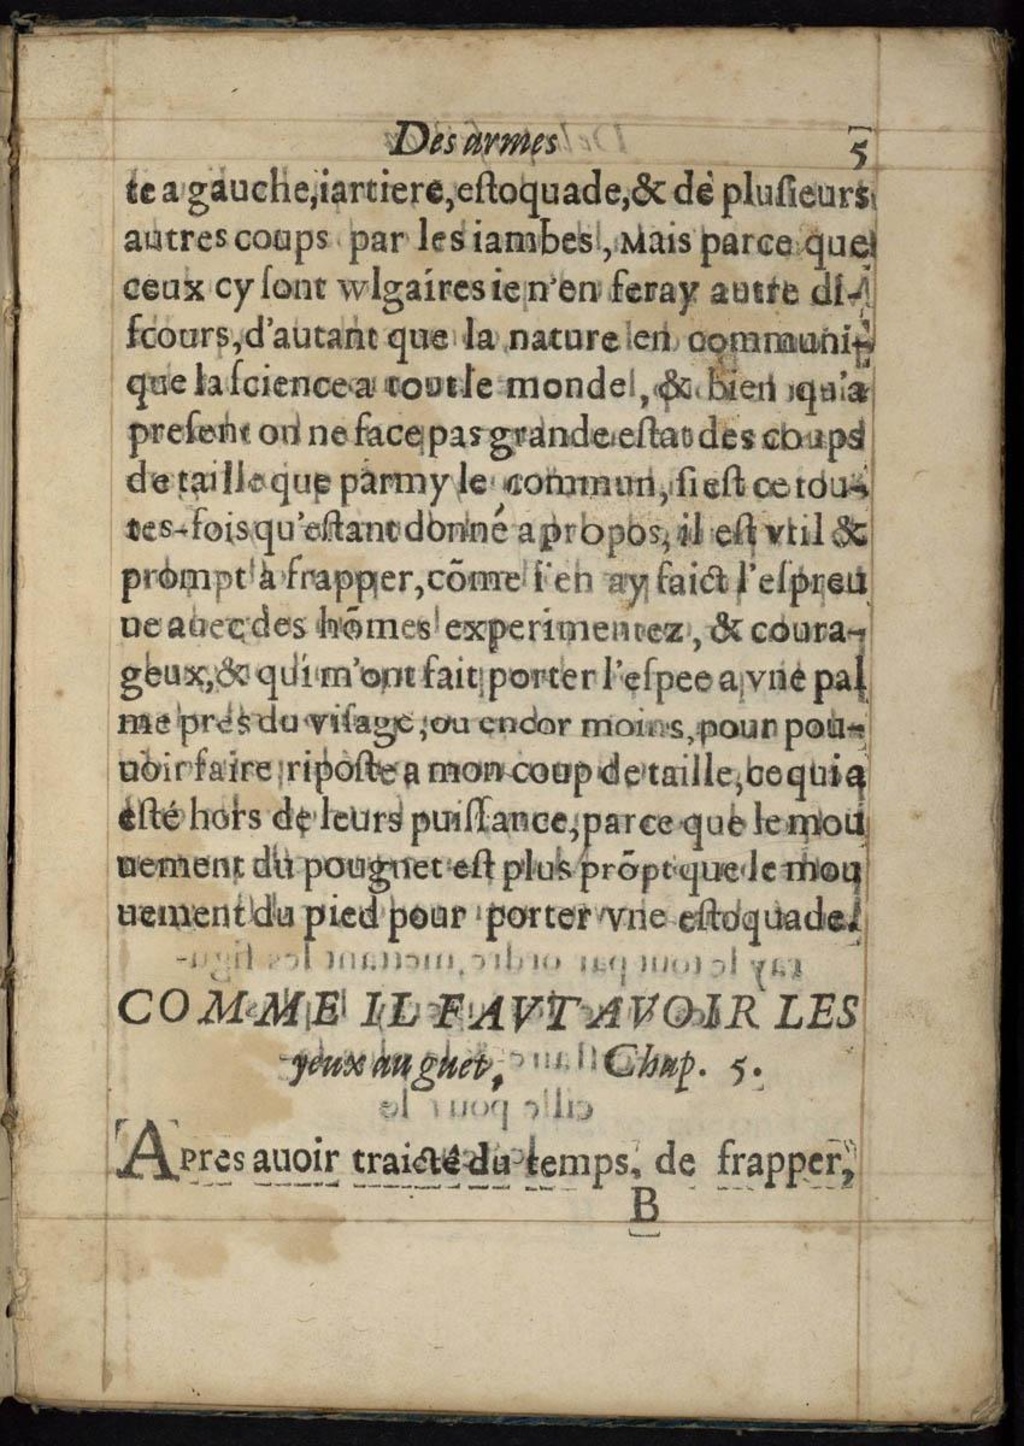 Des armes 5
te a gauche, iartiere, eſtoquade, & de pluſieurs
autres coups par les iambes, Mais parce que
ceux cy ſont wlgaires ie n'en feray autre di-
ſcours, d'autant que la nature en communi-
que la ſcience a tout le monde, & bien qu'a
preſent on ne face pas grande eſtat des coups
de taille que parmy le commun, ſi eſt ce tou-
tes-fois qu'eſtant donné a propos, il eſt vtil &
prompt à frapper, cõme i'en ay faict l'eſpreu
ue auec des hõmes experimentez, & coura-
geux, & qui m'ont fait porter l'eſpee a vne pal
me prés du viſage, ou encor moins, pour pou-
uoir faire ripoſte a mon coup de taille, ce qui a
eſté hors de leurs puiſſance, parce que le mou
uement du pougnet eſt plus prõpt que le mou
uement du pied pour porter vne eſtoquade.
COMME IL FAVT AVOIR LES
yeux au guet, Chap. 5.
Apres auoir traicté du temps, de frapper,
B